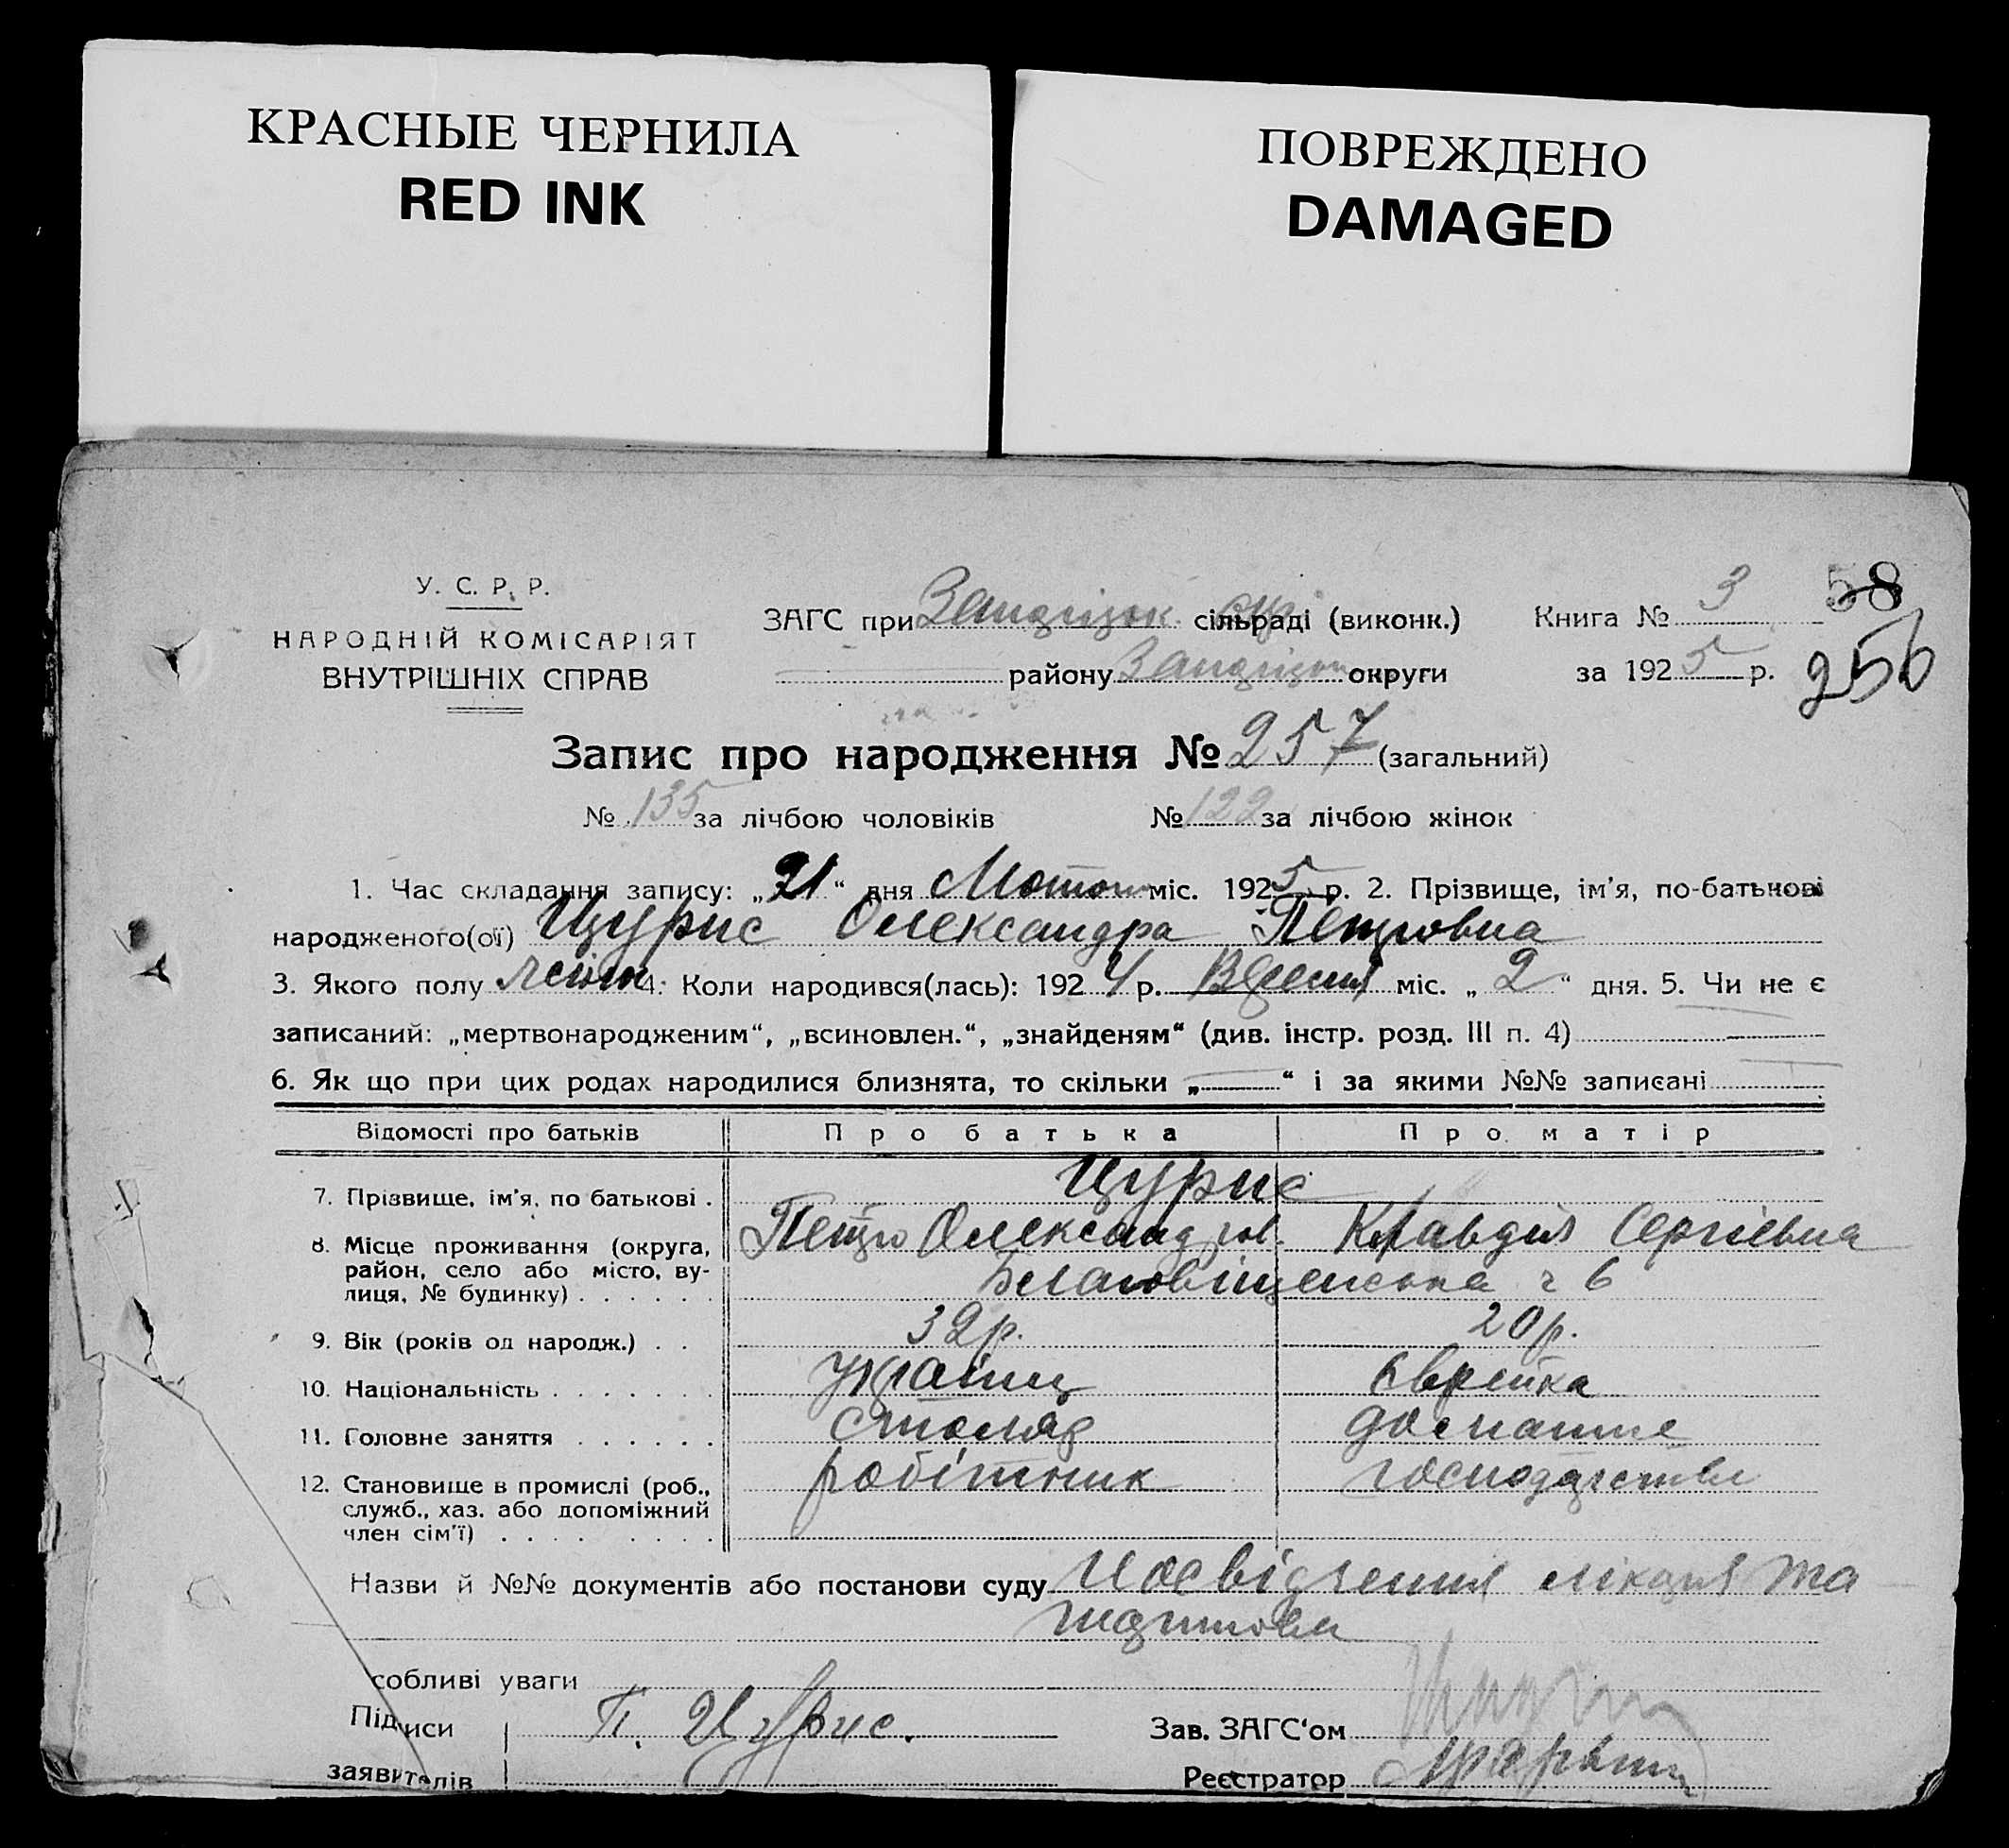 КРАСНЫЕ ЧЕРНИЛА
RED INK
ПОВРЕЖДЕНО
DAMAGED
У. С. Р. Р.
НАРОДНІЙ КОМІСАРІЯТ
ВНУТРІШНІХ СПРАВ
ЗАГС при сільраді (виконк.)
району округи
Книга № 3
за 1925 р.
58
256
Запис про народження № 257 (загальний)
№ 135 за лічбою чоловіків № 122 за лічбою жінок
1. Час складання запису: „21“ дня міс. 1925 р. 2. Прізвище, ім'я, по-батькові
народженого(ої) Цурис Олександра Петровна
3. Якого полу жіноч 4. Коли народився(лась): 1924 р. Вересня міс. „2“ дня. 5. Чи не є
записаний: „мертвонародженим“, „всиновлен.“, „знайденям“ (див. інстр. розд. III п. 4)
6. Як що при цих родах народилися близнята, то скільки „—“ і за якими №№ записані
Відомості про батьків Про батька Про матір
7. Прізвище, ім'я, по батькові . Цурис
Петро Олександров. Клавдія Сергієвна
8. Місце проживання (округа, район, село або місто, вулиця, № будинку) . . . . . . Благовіщенська ч 6
9. Вік (років од народж.) . . 32 р. 20 р.
10. Національність . . . . . . . українц єврейка
11. Головне заняття . . . . . . столяр домашнє
12. Становище в промислі (роб., служб., хаз. або допоміжний член сім'ї) . . . . . . . робітник господарство
Назви й №№ документів або постанови суду Посвідчення лікаря та
собливі уваги
Підписи П. Цурис. Зав. ЗАГС'ом
заявителів Реєстратор